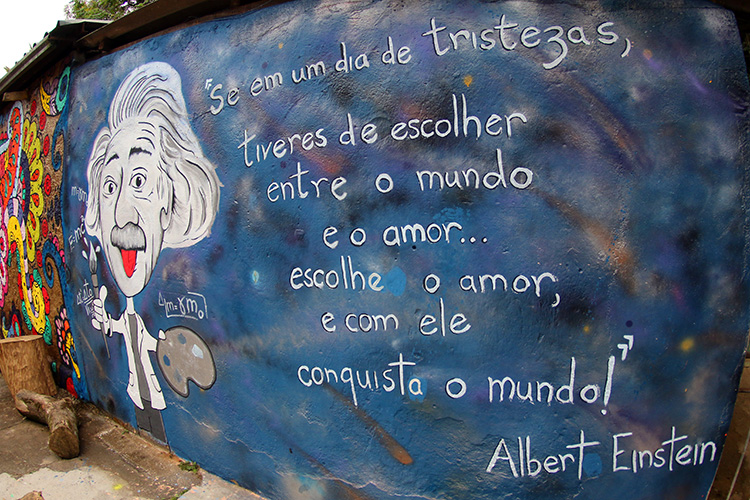 "Se em um dia de tristezas,
tiveres de escolher
entre o mundo
e o amor...
escolhe o amor,
e com ele
conquista o mundo!"
Albert Einstein
E=mc²